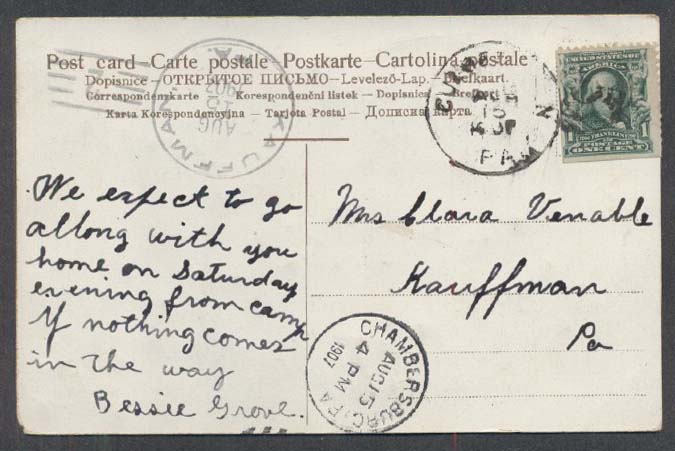 Post card – Carte postale Postkarte – Cartolina postale
Dopisnice – ОТКРЫТОЕ ПИСЬМО – Levelező-Lap. – Brefkaart.
Correspondenzkarte – Korespondenční listek – Dopisnica – Brefkort
Karta Korespondencyjna – Tarjeta Postal – Дописна карта
KAUFFMAN, PA.
AUG
15
1907
AUG
15
PA
UNITED STATES OF AMERICA
1 1
FRANKLIN
POSTAGE
ONE CENT
We expect to go
allong with you
home on Saturday
evening from camp
If nothing comes
in the way
Bessie Grove.
Mrs Clara Venable
Kauffman
Pa
CHAMBERSBURG, PA.
AUG 15
4 PM
1907